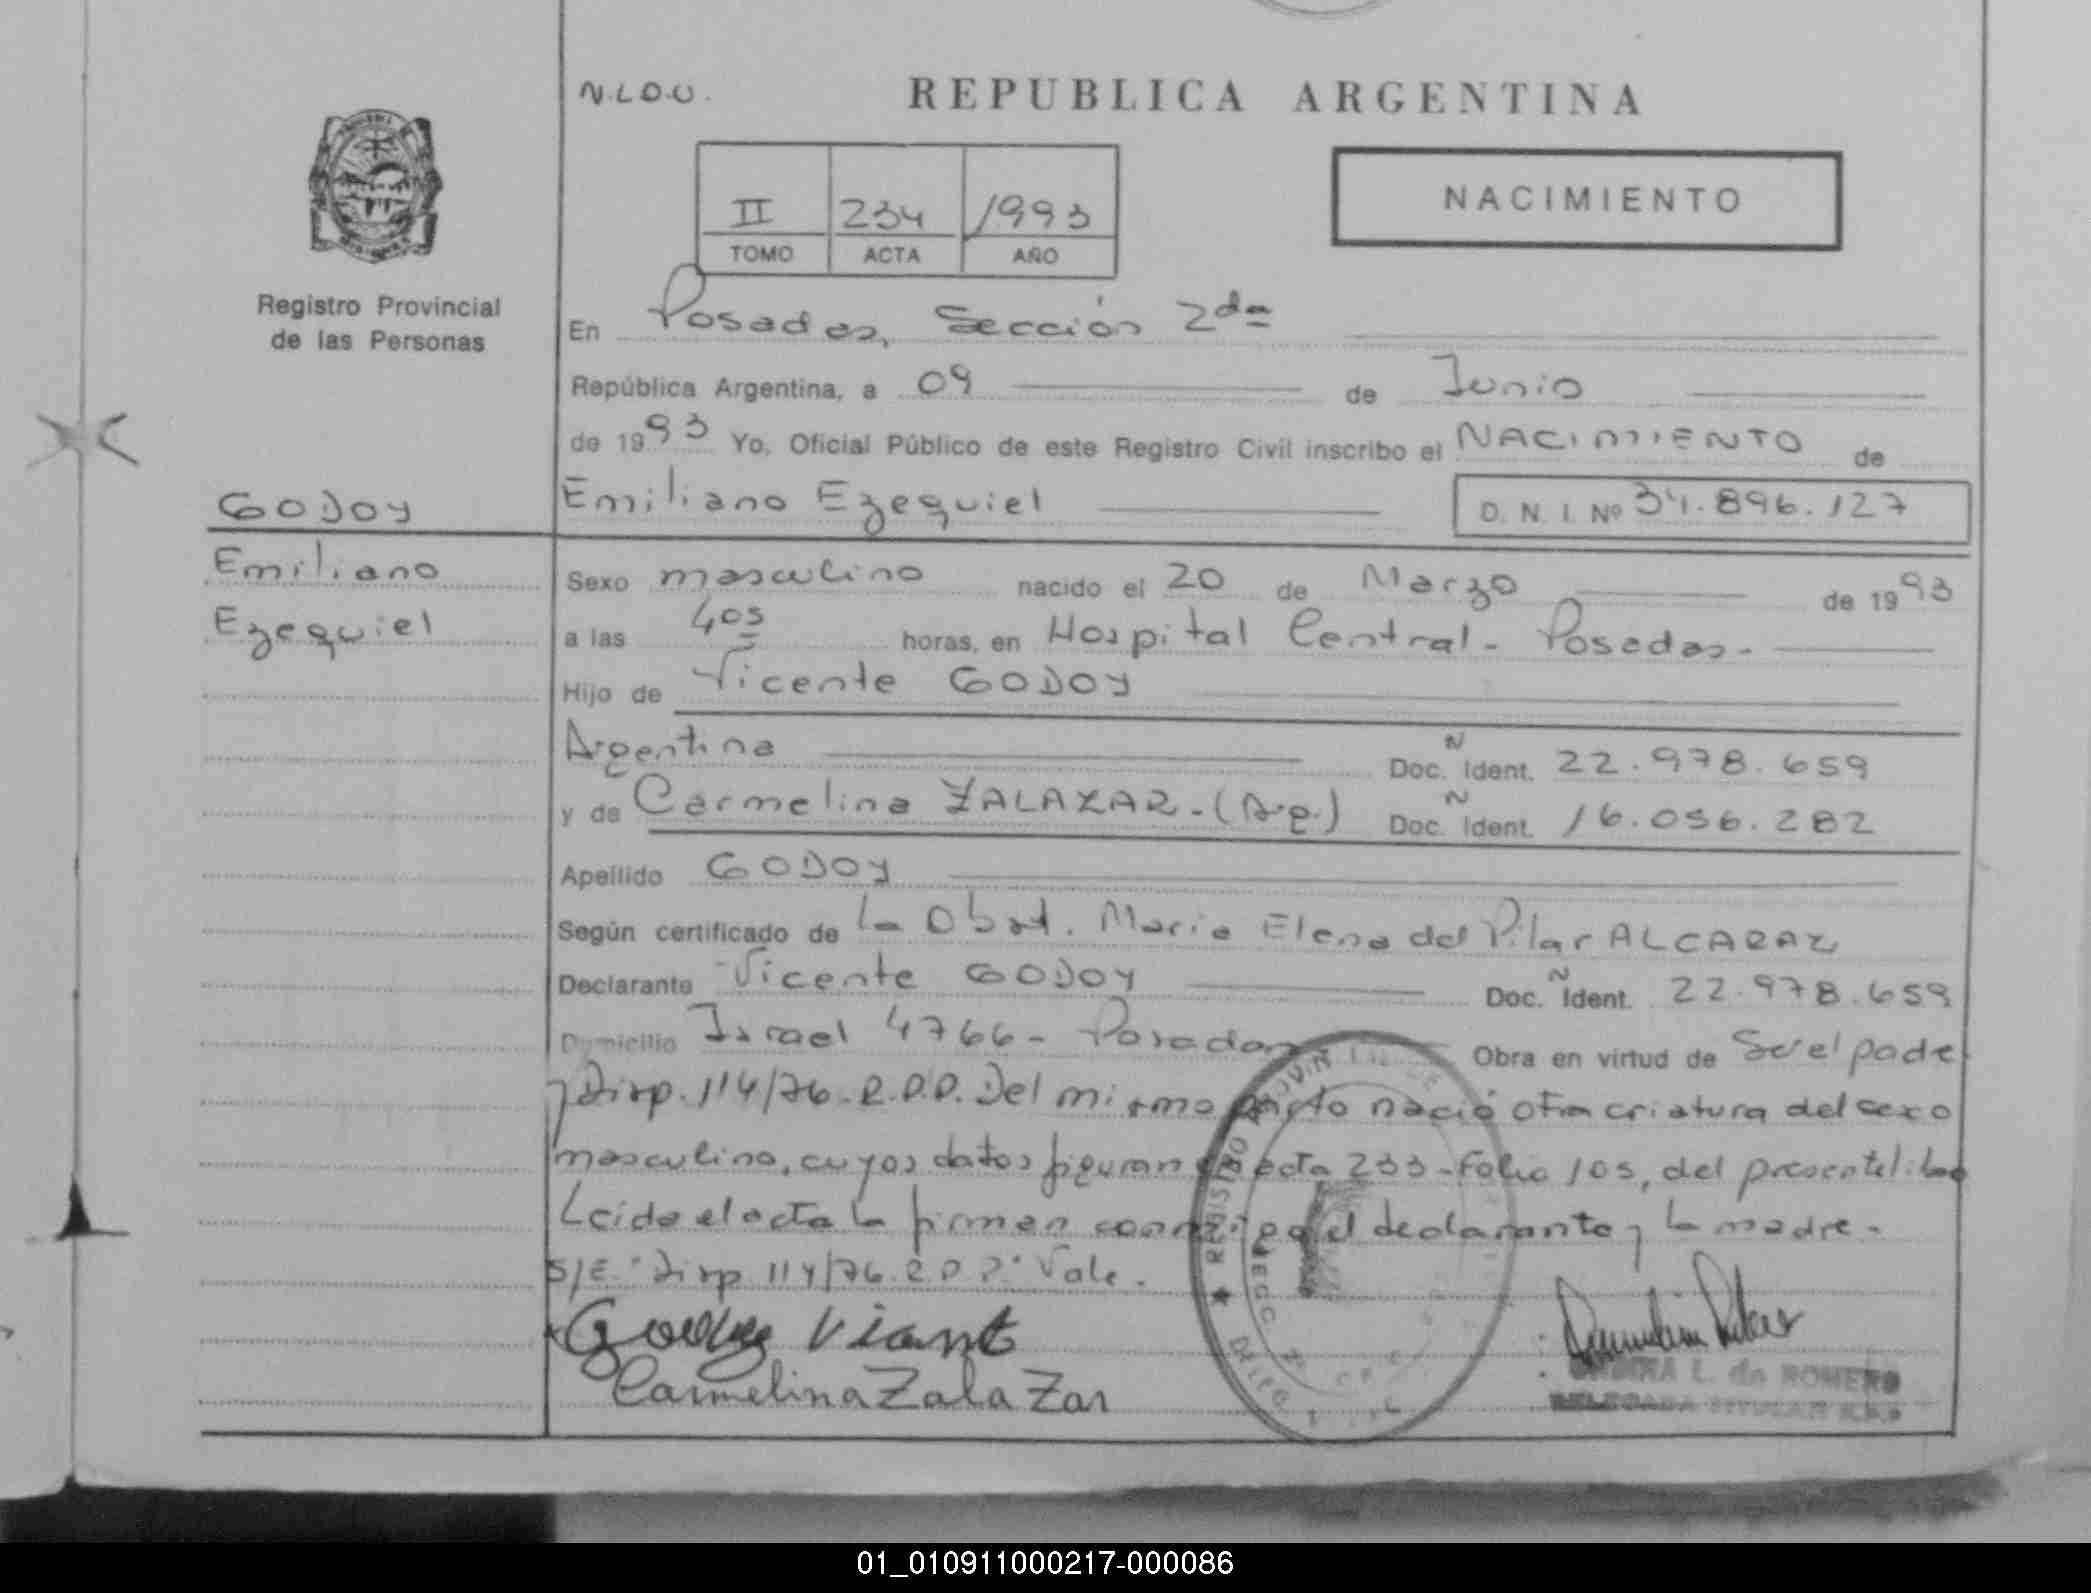 N.L.O.U.
REPUBLICA ARGENTINA
II 234 1993
TOMO ACTA AÑO
NACIMIENTO
Registro Provincial
de las Personas
En Posadas, Sección 2da
República Argentina, a 09 de Junio
de 1993 Yo, Oficial Público de este Registro Civil inscribo el NACIMIENTO de
GODOY
Emiliano Ezequiel D. N. I. Nº 34.896.127
Emiliano
Ezequiel
Sexo masculino nacido el 20 de Marzo de 1993
a las 405 horas, en Hospital Central - Posadas -
Hijo de Vicente GODOY
Argentina Doc. Ñ Ident. 22.978.659
y de Carmelina ZALAZAR - (Arg.) Doc. Ñ Ident. 16.056.282
Apellido GODOY
Según certificado de la Obst. Maria Elena del Pilar ALCARAZ
Declarante Vicente GODOY Doc. Ñ Ident. 22.978.659
Domicilio Israel 4766 - Posadas Obra en virtud de Ser el padre
y Disp. 114/76 - R.P.P. Del mismo parto nació otra criatura del sexo
masculino, cuyos datos figuran en acta 233 - Folio 105, del presente libro
Leida el acta la firman conmigo el declarante y la madre -
S/E: "Disp 114/76 R.P.P." Vale.
Godoy Vicente
Carmelina Zalazar
REGISTRO PROVINCIAL DE
L. de ROMERO
DELEGADA TITULAR R.P.P
01_010911000217-000086